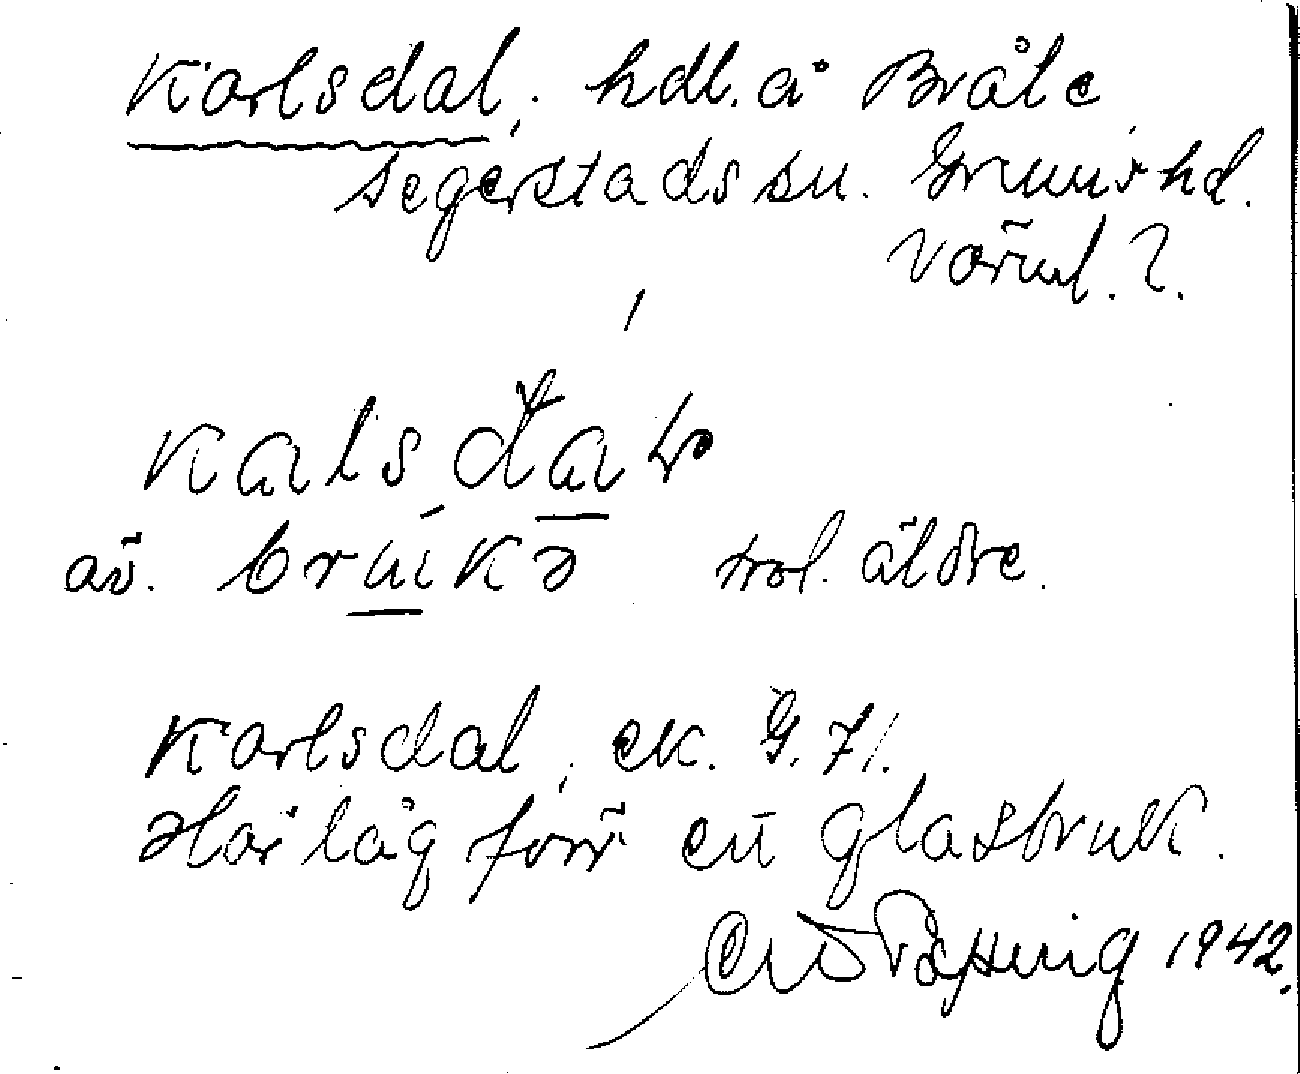 Karlsdal, hdl. å Bråte
Segerstads sn. Grums hd.
Värml. 2.
kals dal
äv. brukə trol. äldre.
Karlsdal, ek. G. 71.
Här låg förr ett glasbruk.
1942.